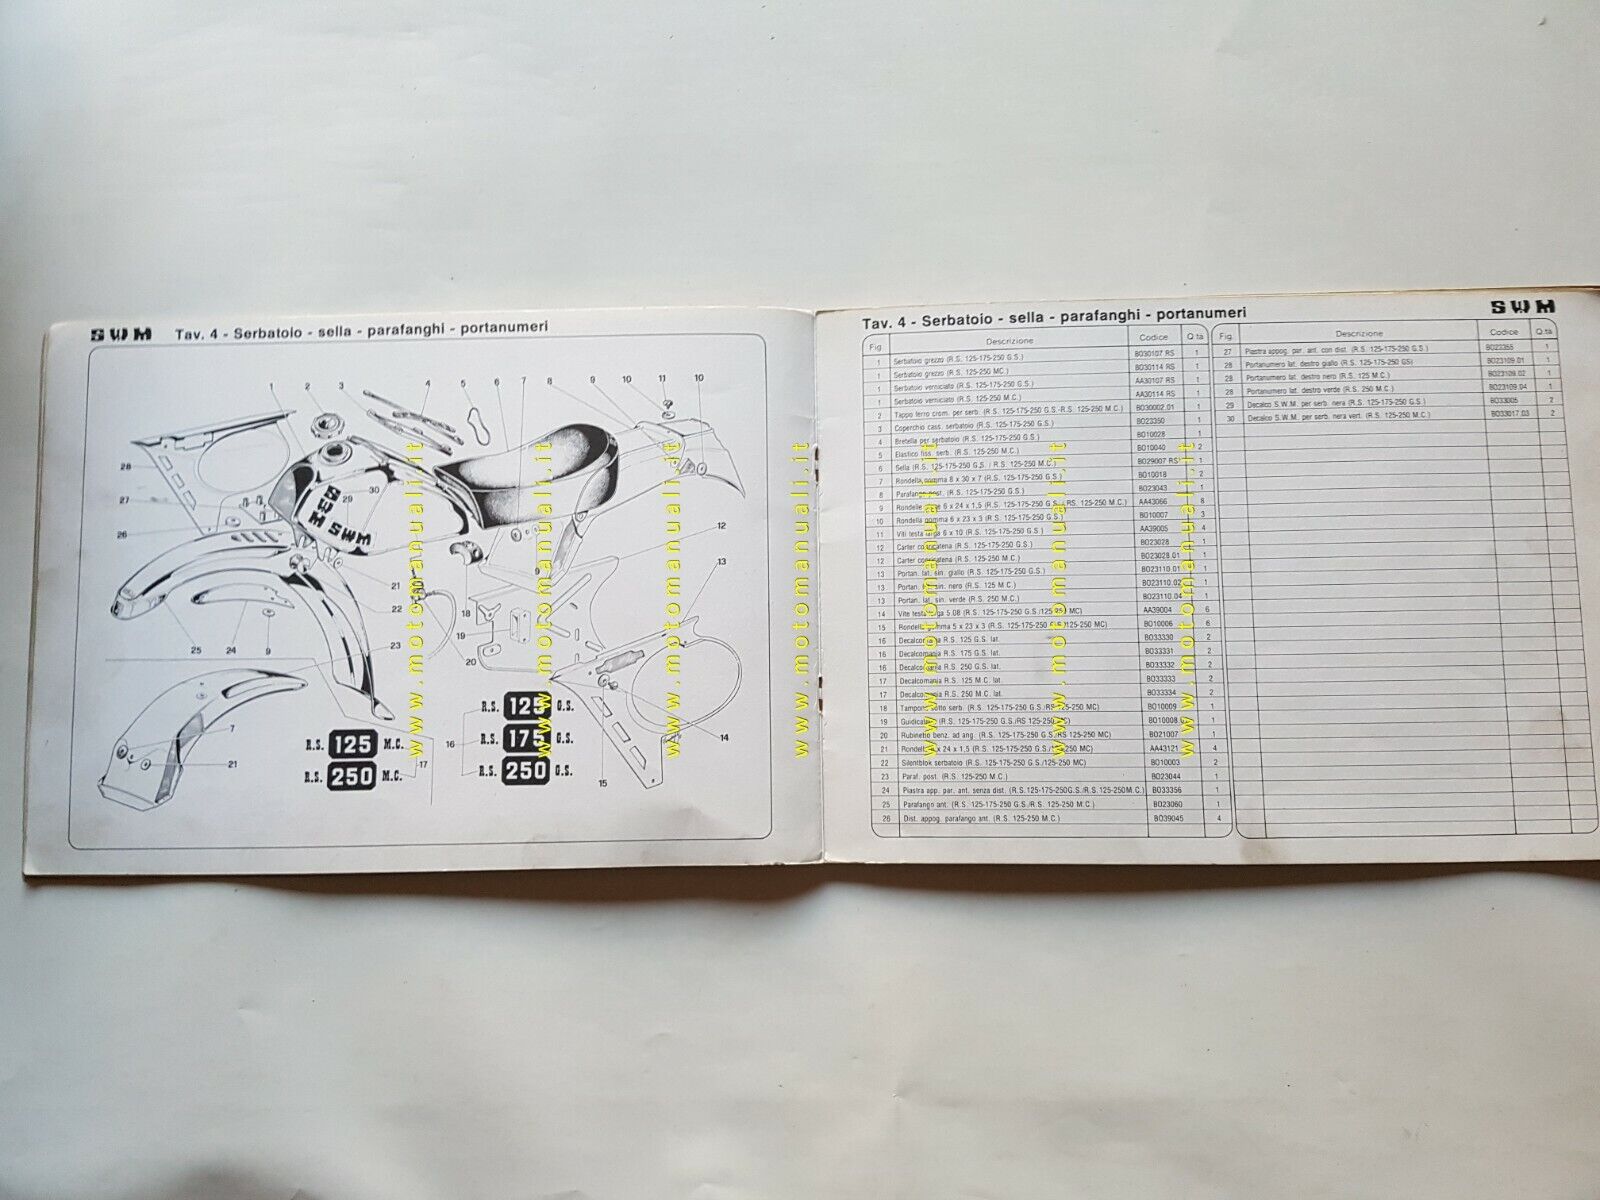 SWM Tav. 4 - Serbatoio - sella - parafanghi - portanumeri
1 2 3 4 5 6 7 8 9 10 11 10
28
27
26
29
30
SWM
SWM
12
13
9
21
22
18
19
20
23
25 24 9
7
21
R.S. 125 M.C.
R.S. 250 M.C.
17
16
R.S. 125 G.S.
R.S. 175 G.S.
R.S. 250 G.S.
15
14
www.motomanuali.it
www.motomanuali.it
www.motomanuali.it
www.motomanuali.it
Tav. 4 - Serbatoio - sella - parafanghi - portanumeri SWM
Fig. Descrizione Codice Q.tà
1 Serbatoio grezzo (R.S. 125-175-250 G.S.) BO30107 RS 1
1 Serbatoio grezzo (R.S. 125-250 MC.) BO30114 RS 1
1 Serbatoio verniciato (R.S. 125-175-250 G.S.) AA30107 RS 1
1 Serbatoio verniciato (R.S. 125-250 M.C.) AA30114 RS 1
2 Tappo ferro crom. per serb. (R.S. 125-175-250 G.S.-R.S. 125-250 M.C.) BO30002.01 1
3 Coperchio cass. serbatoio (R.S. 125-175-250 G.S.) BO23350 1
4 Bretella per serbatoio (R.S. 125-175-250 G.S.) BO10028 1
5 Elastico fiss. serb. (R.S. 125-250 M.C.) BO10040 2
6 Sella (R.S. 125-175-250 G.S. / R.S. 125-250 M.C.) BO29007 RS 1
7 Rondella gomma 8 x 30 x 7 (R.S. 125-175-250 G.S.) BO10018 2
8 Parafango post. (R.S. 125-175-250 G.S.) BO23043 1
9 6 x 24 x 1,5 (R.S. 125-175-250 G.S. / RS. 125-250 M.C.) AA43066 8
10 Rondella gomma 6 x 23 x 3 (R.S. 125-175-250 G.S.) BO10007 3
11 Viti testa larga 6 x 10 (R.S. 125-175-250 G.S.) AA39005 4
12 Carter copricatena (R.S. 125-175-250 G.S.) BO23028 1
12 Carter copricatena (R.S. 125-250 M.C.) BO23028.01 1
13 Portan. lat. sin. giallo (R.S. 125-175-250 G.S.) BO23110.01 1
13 Portan. lat. sin. nero (R.S. 125 M.C.) BO23110.02 1
13 Portan. lat. sin. verde (R.S. 250 M.C.) BO23110.04 1
14 Vite testa larga 5.08 (R.S. 125-175-250 G.S./125-250 MC) AA39004 6
15 Rondella gomma 5 x 23 x 3 (R.S. 125-175-250 G.S./125-250 MC) BO10006 6
16 Decalcomania R.S. 125 G.S. lat. BO33330 2
16 Decalcomania R.S. 175 G.S. lat. BO33331 2
16 Decalcomania R.S. 250 G.S. lat. BO33332 2
17 Decalcomania R.S. 125 M.C. lat. BO33333 2
17 Decalcomania R.S. 250 M.C. lat. BO33334 2
18 Tampone sotto serb. (R.S. 125-175-250 G.S./RS 125-250 MC) BO10009 1
19 (R.S. 125-175-250 G.S./RS 125-250 MC) 1
20 Rubinetto benz. ad ang. (R.S. 125-175-250 G.S./RS 125-250 MC) BO21007 1
21 x 24 x 1,5 (R.S. 125-175-250 G.S./125-250 MC) AA43121 4
22 Silentblok serbatoio (R.S. 125-175-250 G.S./125-250 MC) BO10003 2
23 Paraf. post. (R.S. 125-250 M.C.) BO23044 1
24 Piastra app. par. ant. senza dist. (R.S. 125-175-250G.S./R.S. 125-250M.C.) BO33356 1
25 Parafango ant. (R.S. 125-175-250 G.S./R.S. 125-250 M.C.) BO23060 1
26 Dist. appog. parafango ant. (R.S. 125-250 M.C.) BO39045 4
Fig. Descrizione Codice Q.tà
27 Piastra appog. par. ant. con dist. (R.S. 125-175-250 G.S.) BO23355 1
28 Portanumero lat. destro giallo (R.S. 125-175-250 GS) BO23109.01 1
28 Portanumero lat. destro nero (R.S. 125 M.C.) BO23109.02 1
28 Portanumero lat. destro verde (R.S. 250 M.C.) BO23109.04 1
29 Decalco S.W.M. per serb. nera (R.S. 125-175-250 G.S.) BO33005 2
30 Decalco S.W.M. per serb. nera vert. (R.S. 125-250 M.C.) BO33017.03 2
www.motomanuali.it
www.motomanuali.it
www.motomanuali.it